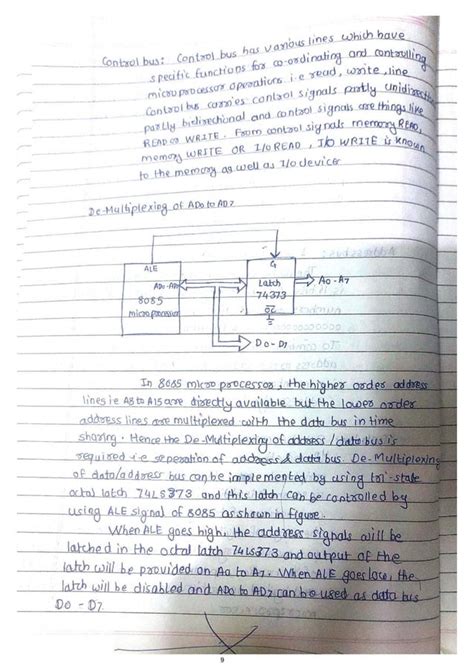 Control bus: Control bus has various lines which have
specific functions for co-ordinating and controlling
microprocessor operations i.e read, write, line
Control bus carries control signals partly unidirection
partly bidirectional and control signals are things like
READ or WRITE. From control signals memory READ,
memory WRITE OR I/O READ, I/O WRITE is known
to the memory as well as I/O device
De-Multiplexing of AD0 to AD7
ALE
G
AD0-AD7
8085
microprocessor
Latch
74373
OC
A0-A7
D0-D7
In 8085 micro processor, the higher order address
lines ie A8 to A15 are directly available but the lower order
address lines are multiplexed with the data bus in time
sharing. Hence the De-Multiplexing of address/data bus is
required i.e seperation of address & data bus. De-Multiplexing
of data/address bus can be implemented by using tri-state
octal latch 74LS373 and this latch can be controlled by
using ALE signal of 8085 as shown in figure.
When ALE goes high, the address signals will be
latched in the octal latch 74LS373 and output of the
latch will be provided on A0 to A7. When ALE goes low, the
latch will be disabled and AD0 to AD7 can be used as data bus
D0 - D7
9